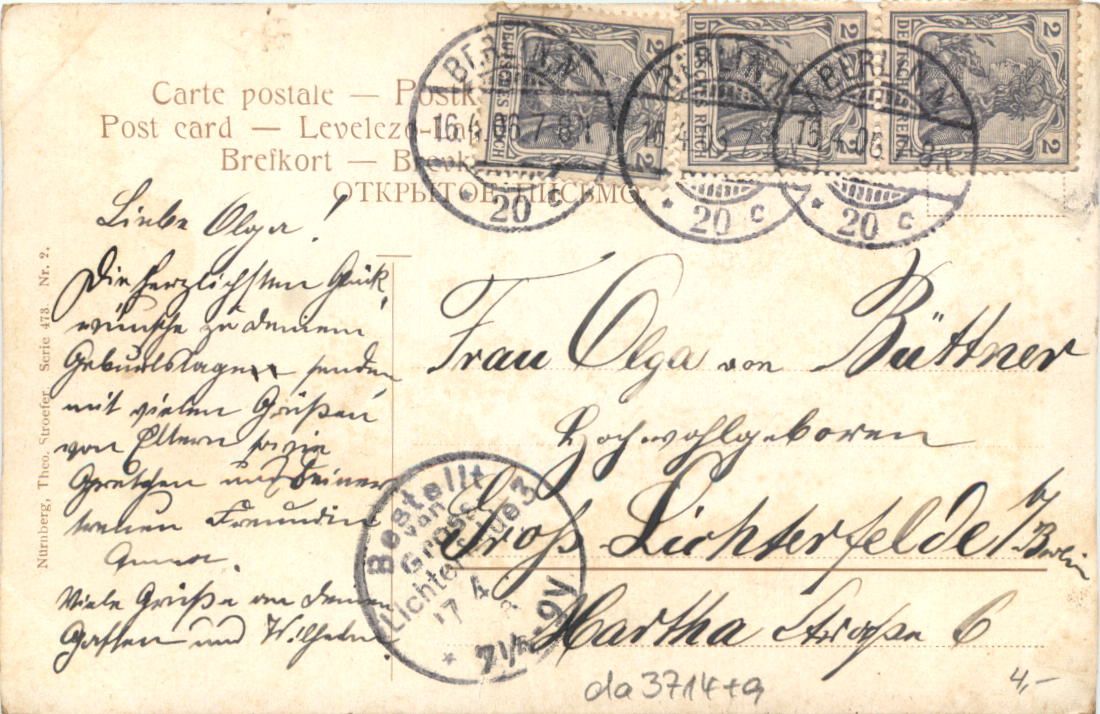 Carte postale — Postk
Post card — Levelező-
Brefkort — Brevk
ОТКРЫТОЕ ПИСЬМО
DEUTSCHES REICH 2 2
DEUTSCHES REICH 2 2
DEUTSCHES REICH 2 2
BERLIN N
16.4.06.7-8N.
20 c
BERLIN N
16.4.06.7
20 c
BERLIN N
16.4.06.7-8N.
20 c
Liebe Olga!
Die herzlichsten Glück-
wünsche zu deinem
Geburtstage senden
mit vielen Grüßen
von Eltern sowie
Gretchen und Deiner
treuen Freundin
Anna.
Viele Grüße an deinen
Gatten und Wilhelm
Frau Olga von Büttner
Hochwohlgeboren
Groß Lichterfelde b/Berlin
Martha Straße 6
Bestellt
von
Gross-
Lichterfelde 3
17.4.
7¼-9V
Nürnberg, Theo. Stroefer, Serie 473. Nr. 2.
da3714+a
4,-